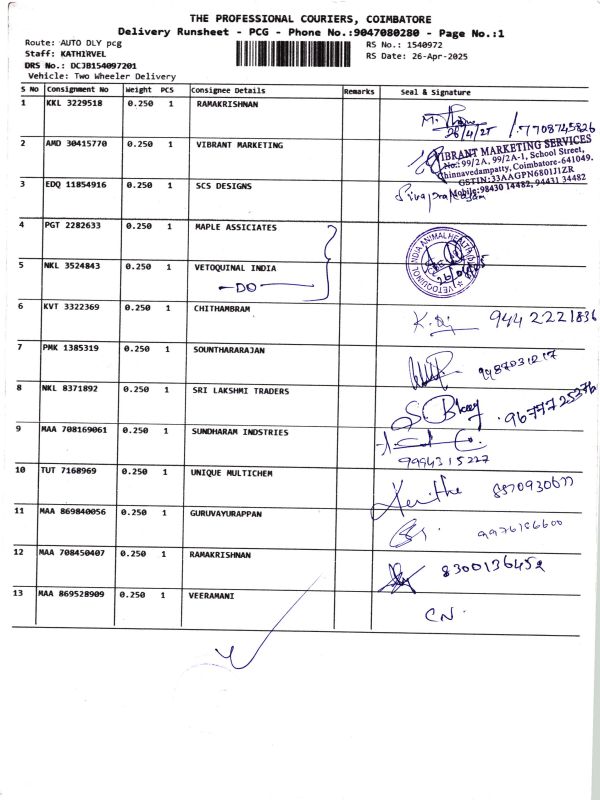 THE PROFESSIONAL COURIERS, COIMBATORE
Delivery Runsheet - PCG - Phone No.:9047080280 - Page No.:1
Route: AUTO DLY pcg
Staff: KATHIRVEL
DRS No.: DCJB154097201
Vehicle: Two Wheeler Delivery
RS No.: 1540972
RS Date: 26-Apr-2025
S No Consignment No Weight PCS Consignee Details Remarks Seal & Signature
1 KKL 3229518 0.250 1 RAMAKRISHNAN
26/4/25 7708745826
2 AMD 30415770 0.250 1 VIBRANT MARKETING
VIBRANT MARKETING SERVICES
No: 99/2A, 99/2A-1, School Street,
Chinnavedampatty, Coimbatore-641049.
GSTIN:33AAGPN6801J1ZR
Mobile:98430 14482, 94431 34482
3 EDQ 11854916 0.250 1 SCS DESIGNS
4 PGT 2282633 0.250 1 MAPLE ASSICIATES
5 NKL 3524843 0.250 1 VETOQUINAL INDIA
-DO-
VETOQUINOL INDIA ANIMAL HEALTH
6 KVT 3322369 0.250 1 CHITHAMBRAM
9442221836
7 PMK 1385319 0.250 1 SOUNTHARARAJAN
8 NKL 8371892 0.250 1 SRI LAKSHMI TRADERS
9677725376
9 MAA 708169061 0.250 1 SUNDHARAM INDSTRIES
9994315227
10 TUT 7168969 0.250 1 UNIQUE MULTICHEM
11 MAA 869840056 0.250 1 GURUVAYURAPPAN
9976156600
12 MAA 708450407 0.250 1 RAMAKRISHNAN
8300136452
13 MAA 869528909 0.250 1 VEERAMANI
CN.